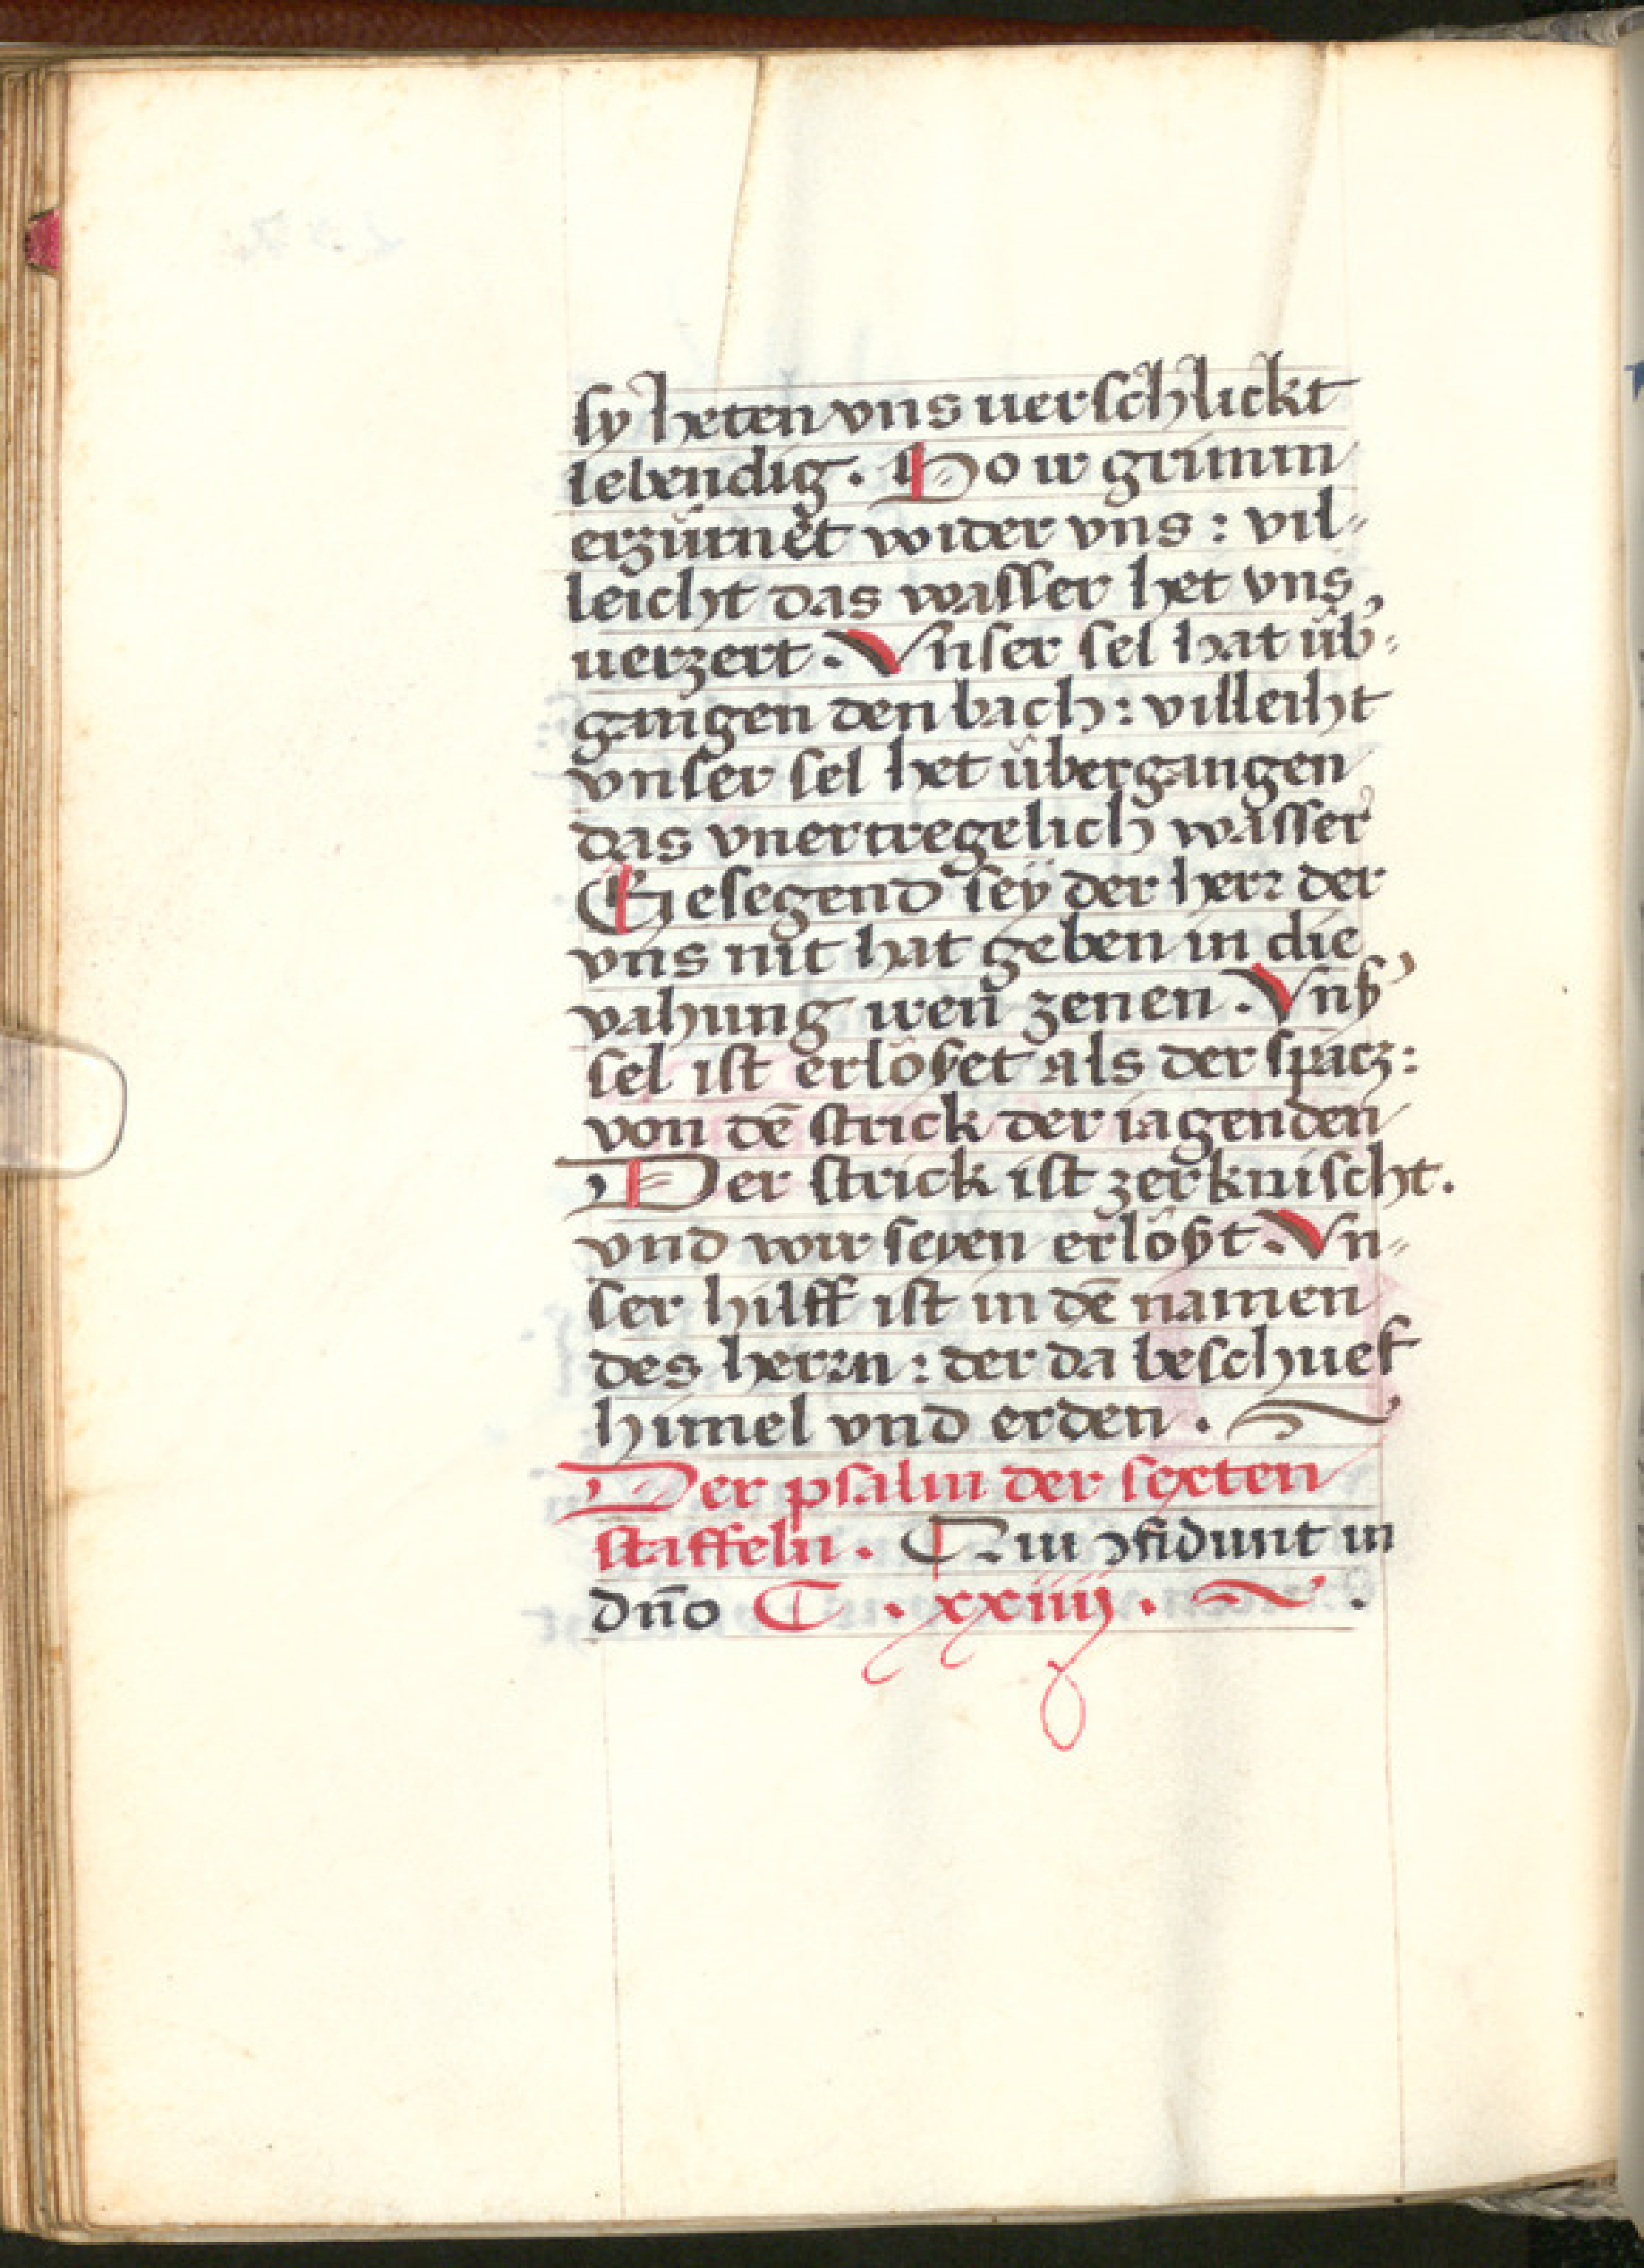 sy heten vns uerschlickt
lebendig. So ir grimm
erzürnet wider vns : vil⸗
leicht das wasser het vns
uerzert. Vnser sel hat üb'⸗
gangen den bach : villeiht
vnser sel het übergangen
das vnertregelich wasser
Gesegend seÿ der herr der
vns nit hat geben in die
vahung iren zenen. Vnß'
sel ist erlößet als der spacz :
von dē strick der iagenden
Der strick ist zerknischt.
vnd wir seyen erlößt. Vn⸗
ser hilff ist in dē namen
des herrn : der da beschuef
himel vnd erden .
Der psalm der sexten
staffeln . Qui ↄfidunt in
dn̄o C . xxiiij .